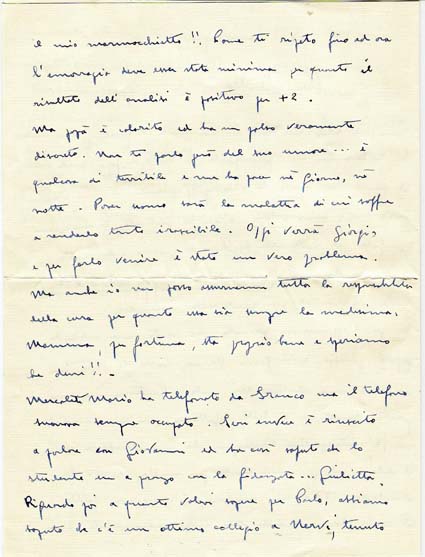 il mio marmocchietto!!. Come ti ripeto fino ed ora
l'emorragia deve esser stata minima per quanto il
risultato dell'analisi è positivo per +2.
Ma papà è colorito ed ha un polso veramente
discreto. Non ti parlo però del suo umore... è
qualcosa di terribile e non ha pace nè giorno, nè
notte. Pover uomo sarà la malattia di cui soffre
a renderlo tanto irascibile. Oggi verrà Giorgio,
e per farlo venire è stato un vero problema.
Ma anche io non posso assumermi tutta la responsabilità
della cura per quanto essa sia sempre la medesima.
Mamma, per fortuna, sta proprio bene e speriamo
che duri!!.
Mercoledì Mario ha telefonato da Franco ma il telefono
suonava sempre occupato. Ieri invece è riuscito
a parlare con Giovanni ed ha così saputo che lo
studente era a pranzo con la fidanzata... Giulietta.
Riguardo poi a quanto volevi sapere per Carlo, abbiamo
saputo che c'è un ottimo collegio a Nervi, tenuto